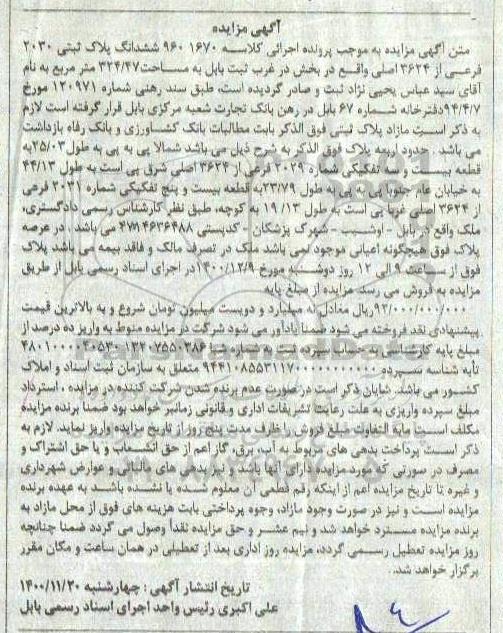 آگهی مزایده
متن آگهی مزایده به موجب پرونده اجرائی کلاسه ۱۶۷۰ ۹۶۰ ششدانگ پلاک ثبتی ۲۰۳۰
فرعی از ۳۶۲۴ اصلی واقع در بخش در غرب ثبت بابل به مساحت ۳۲۴/۴۷ متر مربع به نام
آقای سید عباس یحیی نژاد ثبت و صادر گردیده است، طبق سند رهنی شماره ۱۲۰۹۷۱ مورخ
۹۴/۴/۷دفترخانه شماره ۶۷ بابل در رهن بانک تجارت شعبه مرکزی بابل قرار گرفته است لازم
به ذکر است مازاد پلاک ثبتی فوق الذکر بابت مطالبات بانک کشاورزی و بانک رفاه بازداشت
می باشد . حدود اربعه پلاک فوق الذکر به شرح ذیل می باشد شمالا پی به پی به طول ۲۵/۰۳به
قطعه بیست و سه تفکیکی شماره ۲۰۲۹ فرعی از ۳۶۲۴ اصلی شرق پی است به طول ۴۴/۱۳
به خیابان عام جنوبا پی به پی به طول ۲۳/۷۹به قطعه بیست و پنج تفکیکی شماره ۲۰۳۱ فرعی
از ۳۶۲۴ اصلی غربا پی است به طول ۱۳/ ۱۹ به کوچه، طبق نظر کارشناس رسمی دادگستری،
ملک واقع در بابل - اوشیب - شهرک پزشکان - کدپستی ۴۷۱۴۶۳۶۴۸۸ می باشد ، در عرصه
پلاک فوق هیچگونه اعیانی موجود نمی باشد ملک در تصرف مالک و فاقد بیمه می باشد پلاک
فوق از ساعت ۹ الی ۱۲ روز دوشنبه مورخ ۱۴۰۰/۱۲/۹در اجرای اسناد رسمی بابل از طریق
مزایده به فروش می رسد مزایده از مبلغ پایه
۹۲/۰۰۰/۰۰۰/۰۰۰ریال معادل نه میلیارد و دویست میلیون تومان شروع و به بالاترین قیمت
پیشنهادی نقد فروخته می شود ضمنا یادآور می شود شرکت در مزایده منوط به واریز ده درصد از
مبلغ پایه کارشناسی به حساب سپرده ثبت به شماره
تأبه شناسه سپرده متعلق به سازمان ثبت اسناد و املاک
کشور می باشد. شایان ذکر است در صورت عدم برنده شدن شرکت کننده در مزایده ، استرداد
مبلغ سپرده واریزی به علت رعایت تشریفات اداری و قانونی زمانبر خواهد بود ضمنا برنده مزایده
مکلف است مابه التفاوت مبلغ فروش را ظرف مدت پنج روز از تاریخ مزایده واریز نماید. لازم به
ذکر است پرداخت بدهی های مربوط به آب، برق، گاز اعم از حق انشعاب و یا حق اشتراک و
مصرف در صورتی که مورد مزایده دارای آنها باشد و نیز بدهی های مالیاتی و عوارض شهرداری
و غیره تا تاریخ مزایده اعم از اینکه رقم قطعی آن معلوم شده یا نشده باشد به عهده برنده
مزایده است و نیز در صورت وجود مازاد، وجوه پرداختی بابت هزینه های فوق از محل مازاد به
برنده مزایده مسترد خواهد شد و نیم عشر و حق مزایده نقداً وصول می گردد ضمنا چنانچه
روز مزایده تعطیل رسمی گردد، مزایده روز اداری بعد از تعطیلی در همان ساعت و مکان مقرر
برگزار خواهد شد.
تاریخ انتشار آگهی : چهارشنبه ۱۴۰۰/۱۱/۲۰
علی اکبری رئیس واحد اجرای اسناد رسمی بابل